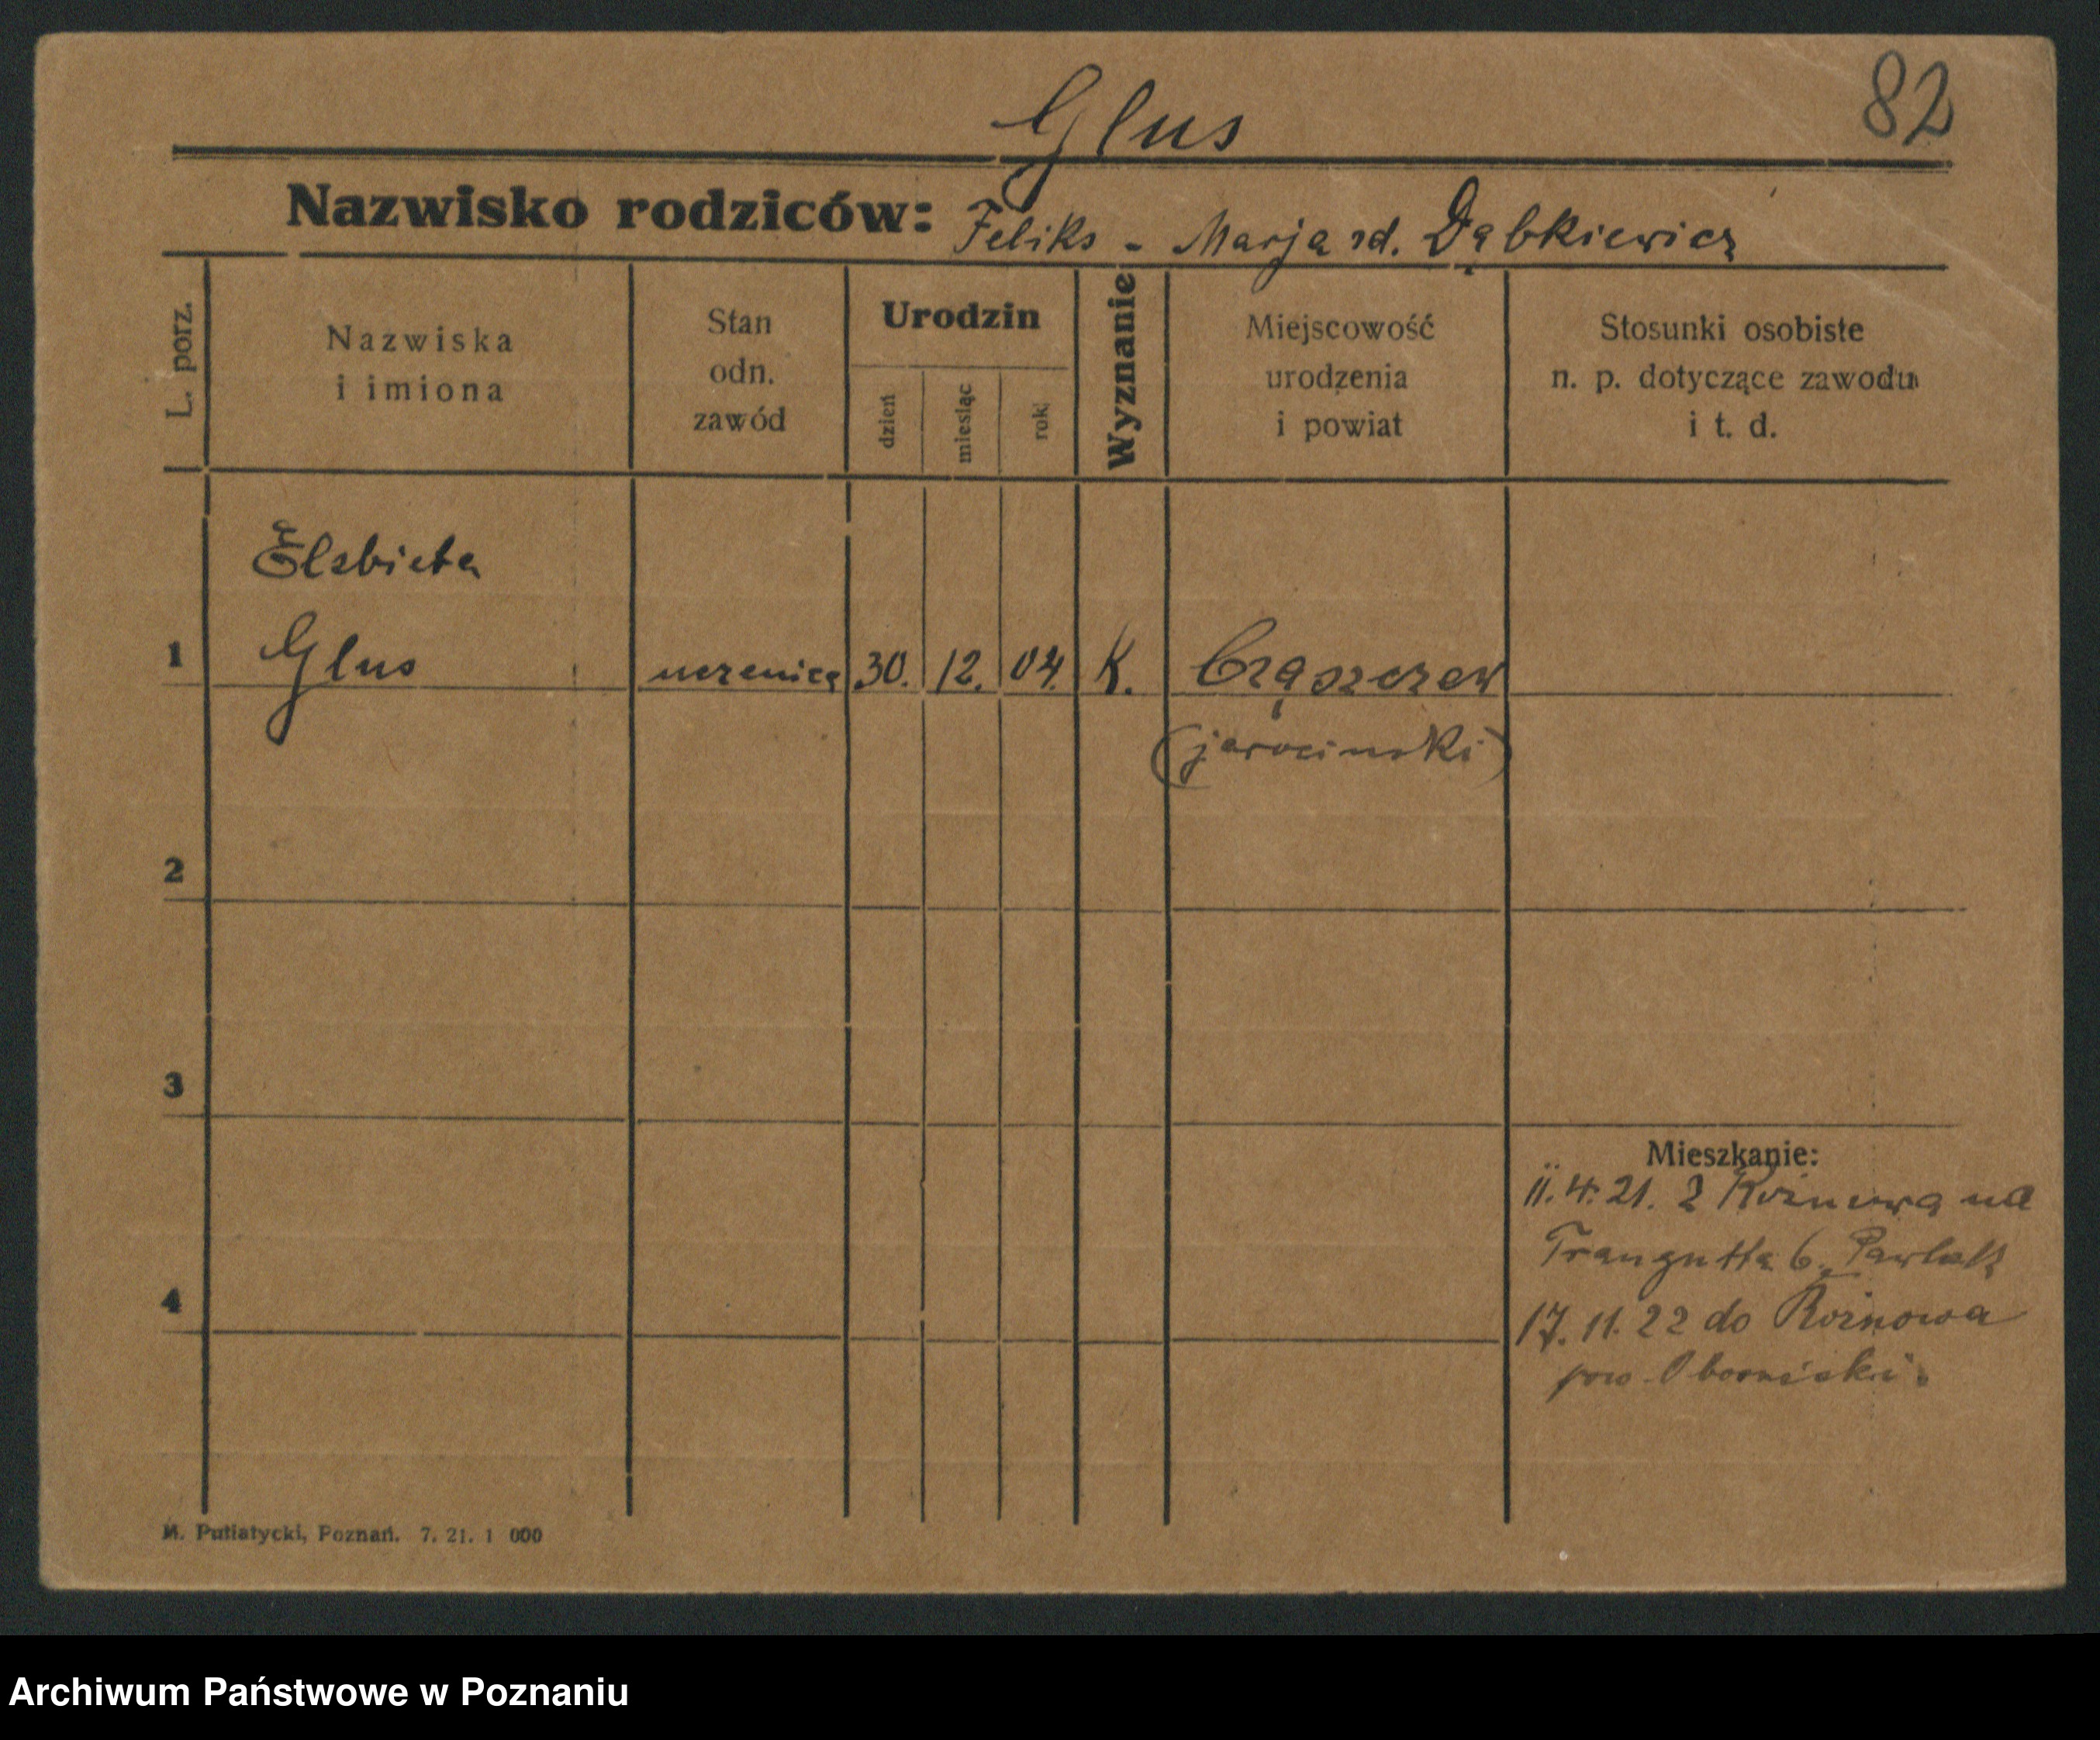 Glus
82
Nazwisko rodziców: Feliks - Marja rd. Dąbkiewicz
L. porz.
Nazwiska
i imiona
Stan
odn.
zawód
Urodzin
dzień
miesiąc
rok
Wyznanie
Miejscowość
urodzenia
i powiat
Stosunki osobiste
n. p. dotyczące zawodu
i t. d.
Elzbieta
1 Glus uczenica 30. 12. 04. K. Cząszczew
(jarocinski)
2
3
Mieszkanie:
11. 4. 21. z Rożnowa na
Traugutta 6. Pawlak
4
17. 11. 22 do Rożnowa
pow. Obornicki.
M. Putiatycki, Poznań. 7. 21. 1 000
Archiwum Państwowe w Poznaniu